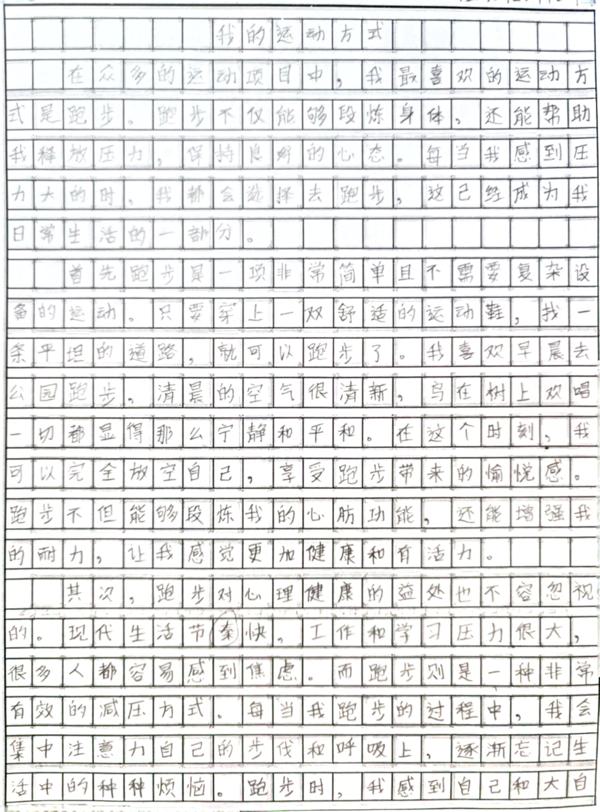 我的运动方式
在众多的运动项目中，我最喜欢的运动方
式是跑步。跑步不仅能够段炼身体，还能帮助
我释放压力，保持良好的心态。每当我感到压
力大的时，我都会选择去跑步，这已经成为我
日常生活的一部分。
首先跑步是一项非常简单且不需要复杂设
备的运动。只要穿上一双舒适的运动鞋，找一
条平坦的道路，就可以跑步了。我喜欢早晨去
公园跑步，清晨的空气很清新，鸟在树上欢唱
一切都显得那么宁静和平和。在这个时刻，我
可以完全放空自己，享受跑步带来的愉悦感。
跑步不但能够段炼我的心肪功能，还能增强我
的耐力，让我感觉更加健康和有活力。
其次，跑步对心理健康的益处也不容忽视
的。现代生活节奏快，工作和学习压力很大，
很多人都容易感到焦虑。而跑步则是一种非常
有效的减压方式。每当我跑步的过程中，我会
集中注意力自己的步伐和呼吸上，逐渐忘记生
活中的种种烦恼。跑步时，我感到自己和大自